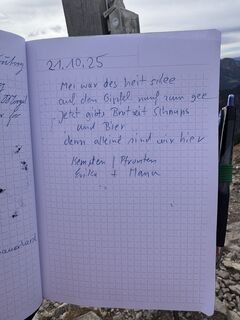 21.10.25
Mei war des heit schee
auf den Gipfel nauf zum gee
jetzt gibts Brotzeit Schnaps
und Bier
denn alleine sind mir hier
Kempten / Pfronten
Erika + Manu